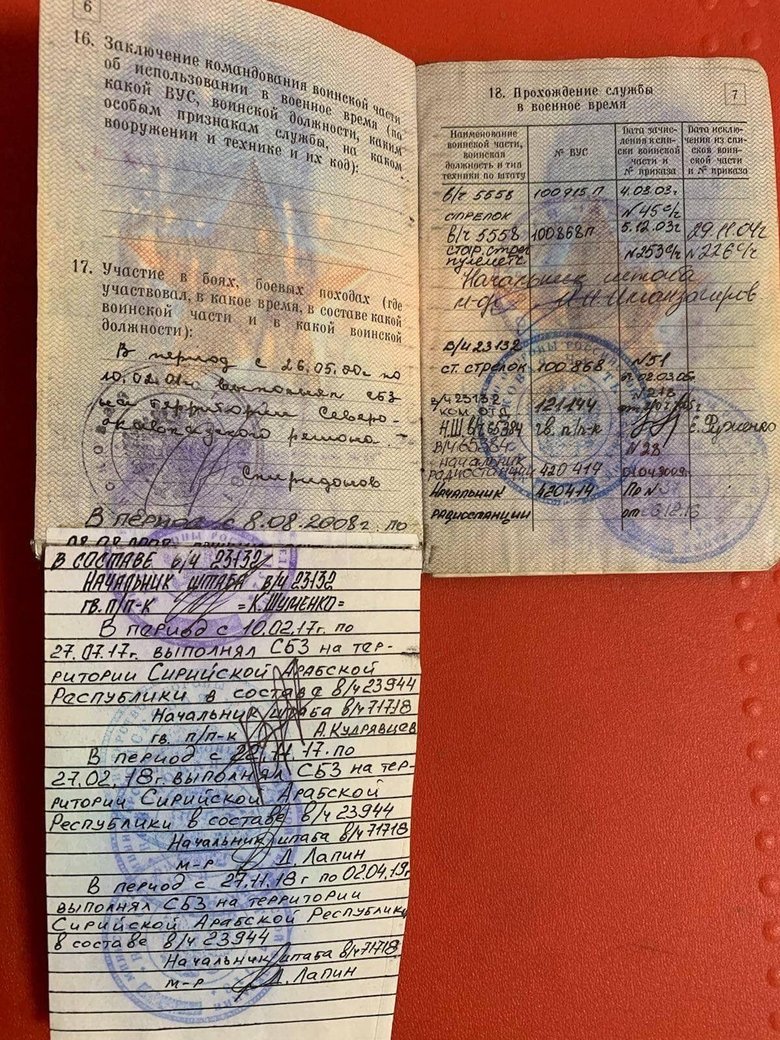 6
16. Заключение командования воинской части
об использовании в военное время (по
какой ВУС, воинской должности, каким
особым признакам службы, на каком
вооружении и технике и их код):
17. Участие в боях, боевых походах (где
участвовал, в какое время, в составе какой
воинской части и в какой воинской
должности):
В период с 26.05.00г по
10.02.01г выполнял СБЗ
на территории Северо-
кавказского региона.
Спиридонов
В период с 8.08.2008г. по
в составе в/ч 23132
Начальник штаба в/ч 23132
гв. п/п-к =К. Шуменко=
В период с 10.02.17г. по
27.07.17г. выполнял СБЗ на тер-
ритории Сирийской Арабской
Республики в составе в/ч 23944
Начальник штаба в/ч 71718
гв. п/п-к А. Кудрявцев
В период с 22.11.17. по
27.02.18г. выполнял СБЗ на тер-
ритории Сирийской Арабской
Республики в составе в/ч 23944
Начальник штаба в/ч 71718
м-р Д. Лапин
В период с 27.11.18г по 02.04.19г
выполнял СБЗ на территории
Сирийской Арабской Республики
в составе в/ч 23944
Начальник штаба в/ч 71718
м-р Д. Лапин
7
18. Прохождение службы
в военное время
Наименование воинской части, воинская должность и тип техники по штату
№ ВУС
Дата зачисления в списки воинской части и № приказа
Дата исключения из списков воинской части и № приказа
в/ч 5558 100915 П 4.03.03г
стрелок №45 с/ч
в/ч 5558 100868 П 5.12.03г 29.11.04г
стар. стрел №253 с/ч №226 с/ч
пулеметч
Начальник штаба
м-р
в/ч 23132 №51
ст. стрелок 100868 02.03.05г
в/ч 23132 121144
ком. отд.
Н.Ш. в/ч 65384 гв. п/п-к
в/ч 65384 №28
начальник
радиостанции 420414
Начальник 420414 Пр №
радиостанции от